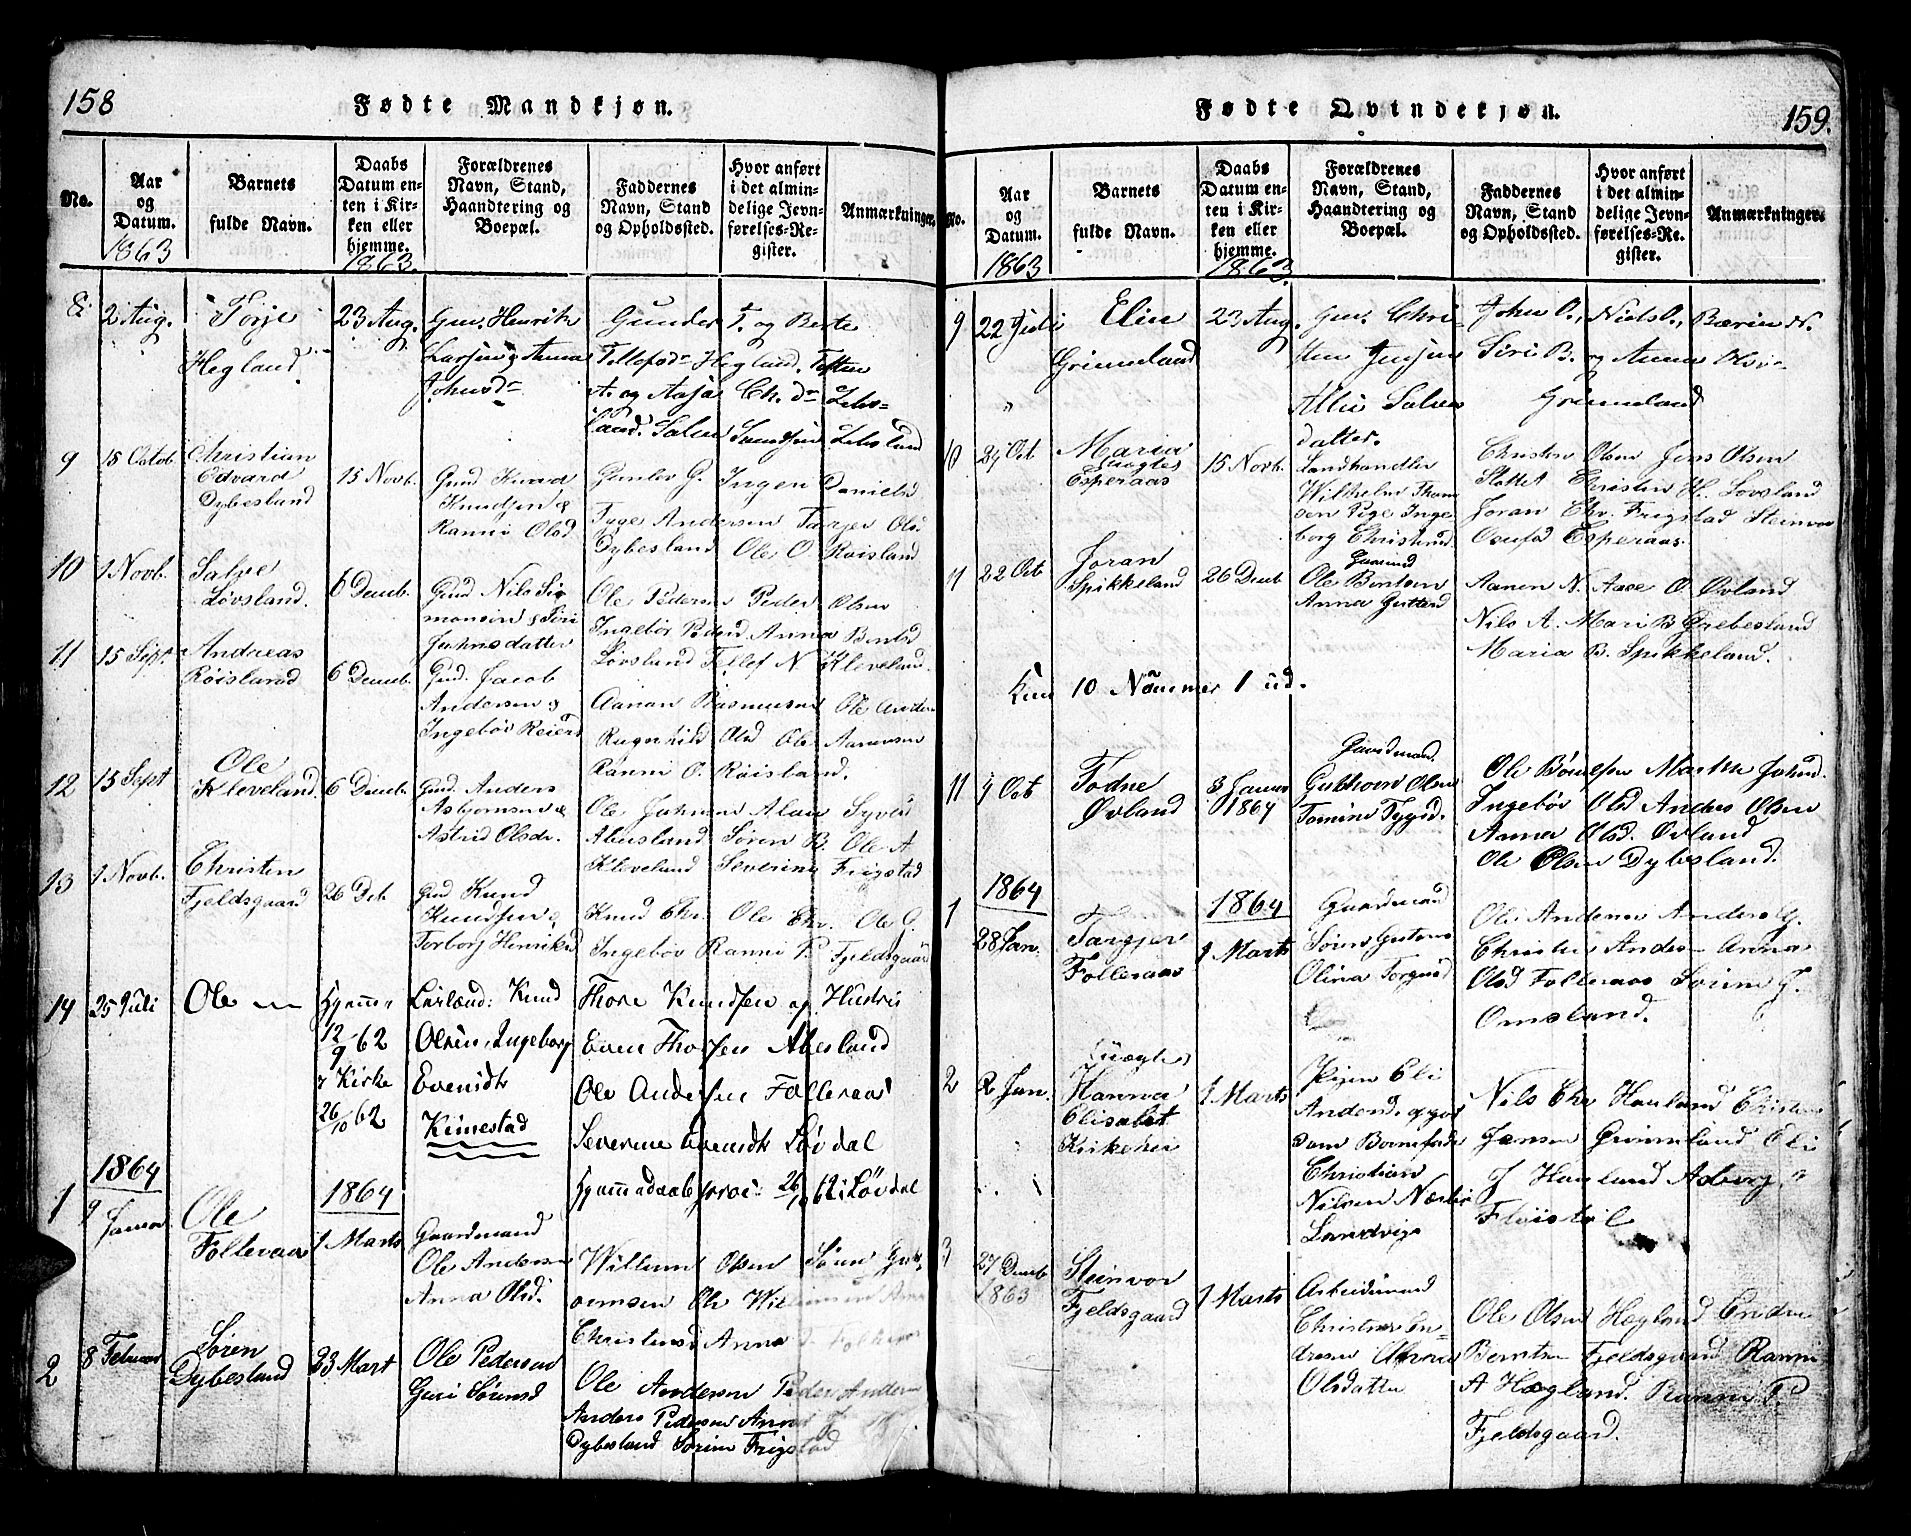 158
Fødte Mandkjøn.
No.
Aar
og
Datum.
1863
Barnets
fulde Navn.
Daabs
Datum en-
ten i Kir-
ken eller
hjemme.
1863.
Forældrenes
Navn, Stand,
Haandtering og
Boepæl.
Faddernes
Navn, Stand
og Opholdssted.
Hvor anført
i det almin-
delige Jevn-
førelses-Re-
gister.
Anmærkninger.
8
2 Aug.
Torje
Hegland
23 Aug.
Gm. Henrik
Larsen og Anna
Johnsd
Gunder T. og Berte
Tellefsdr Hegland.
A. og Aasa Ch. dr
land. Salve
9
15 Octob
Christian
Edvard
Dybesland
15 Novb.
Gmd Knud
Knudsen &
Ranni Olsd
Gunlov G. Inger Daniels
Tyge Andersen Tarjer Olsd
Dybesland Ole O. Røisland
10
1 Novb.
Salve
Løvsland.
6 Decmb.
Gmd Nils Si
monsen & Siri
Johnsdatter
Ole Peders Peder Olsen
Ingebør Pedersd Anna Berntsd
Løvsland Tellef N Kleveland
11
15 Sept.
Andreas
Røisland
6 Decmb.
Gmd. Jacob
Andersen &
Ingebør Reiers
Aanan Rasmussen Ole Ander
Ragnhild Olsd Ole Aanensen
Ranni O. Røisland.
12
15 Sept
Ole
Kleveland.
6 Decmb
Gmd. Anders
Asbjornsen &
Astrid Olsdr.
Ole Johnsen Alau Syverts
Abusland Søren B. Ole A
Kleveland Severine Frigstad
13
1 Novb.
Christen
Fjeldsgaard
26 Deb
Gmd Knud
Knudsen &
Torborj Henriksd
Knud Chr. Ole Chr. Ole G.
Ingebør Ranni P. Fjeldsgaard
14
25 Juli
Ole
Hjemme
12/9 62
i Kirke
26/10 62
Knud
Olsen, Ingeborg
Evensdtr
Kimestad
Thore Knudsen og Hustru
Even Thorsen Abesland
Ole Andersen Folleraas
Severine Evensdtr Løvdal
Hjemmedaab prøv: 26/10 62 i Løvdal
1864
1
9
Januar
Ole
Folleraas
1864
1 Marts
Gaardmand
Ole Andersen
Anna Olsd.
Willum Olsen Søren Gut
ormsen Ole
Christensd Anna
2
8 Februar
Søren
Dybesland
23 Mart
Ole Pedersen
Guri Sørensd
Ole Andersen Peder Anders
Anders Pedersen Anna
Dybesland Sørine Frigstad
Fødte Qvindekjøn.
159.
No.
Aar
og
Datum.
1863
Barnets
fulde Navn.
Daabs
Datum en-
ten i Kir-
ken eller
hjemme.
1863.
Forældrenes
Navn, Stand,
Haandtering og
Boepæl.
Faddernes
Navn, Stand
og Opholdssted.
Hvor anført
i det almin-
delige Jevn-
førelses-Re-
gister.
Anmærkninger.
9
22 Juli
Elen
Grimeland
23 Aug.
Gm. Chri-
sten Jensen
Allis Salves
datter.
John O., Niels O., Bærin N.
Siri B. og Anna Olsd
Grimeland
10
24 Oct.
Maria
uægte
Esperaas
15 Novb.
Landhandler
Wilhelm Thom
sen Pige Inge
borg Christensd
Christen Olsen Jens Olsen
Slottet Christen H. Løvsland
Joran Chr. Frigstad Steinvor
Osufsd Esperaas.
11
22 Oct
Joran
Spikkeland
26 Decmb
Gaarmd
Ole Bentsen
Anna Guttormsd
Aanen N. Aase O. Øvland
Nils A. Mari B. Grebesland
Maria B. Spikkeland.
Kun 10 Nommer 1 ud.
11
9 Oct
Todne
Øvland
3 Januar
1864
Gaardmand.
Guthorm Olsen
Tomine Tygesd.
Ole Børufsen Marthe Johnsd
Ingebør Olsd Anders Olsen
Aanna Olsd. Øvland
Ole Olsen Dybesland.
1864
1
28 Jan.
Targjer
Folleraas
1864
1 Marts
Gaardmand
Søren Guttorms
Olina Torgersd
Ole Andersen Anders G.
Christen Anders Anna
Olsd Folleraas Sørine G.
Omsland.
2
2 Jan.
uægte
Hanna
Elisabet
Kirkehei
1 Marts
Pigen Eli
Andersd, opgivet
som Barnefader
Christian
Nilsen
Landvig
Nils Chr Hauland Cristens
Jansen Grimeland Eli
J Hauland Asborg
Fløistøl
3
27 Decmb
1863
Steinvor
Fjeldsgaard
1 Marts
Arbeidsmand
Christen En-
dresen Anna
Olsdatter
Ole Olsen Hægland Endre
Berntsen Fjeldsgaard Ranni
A Hægland. Ranni P.
Fjeldsgaard.